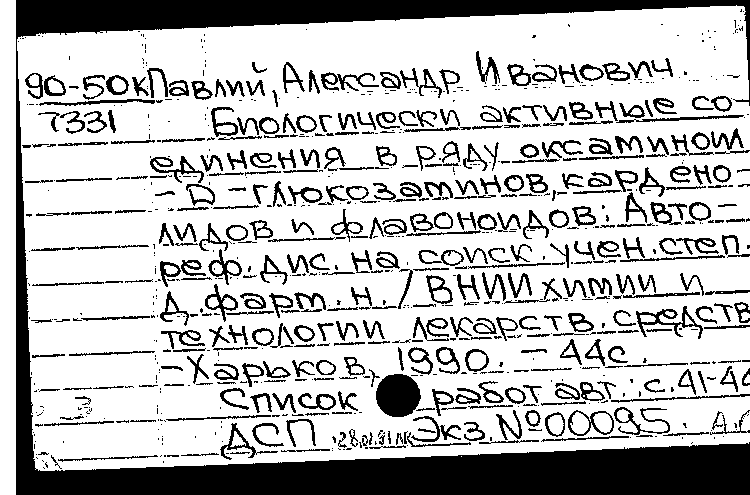 90-50к Павлий, Александр Иванович.
7331 Биологически активные со-
единения в ряду оксаминоил
-D-глюкозаминов, кардено-
лидов и флавоноидов: Авто-
реф. дис. на соиск. учен. степ.
д. фарм. н. / ВНИИ химии и
технологии лекарств. средств
-Харьков, 1990. - 44с.
Список работ авт.: с. 41-44
ДСП Экз. №00095.